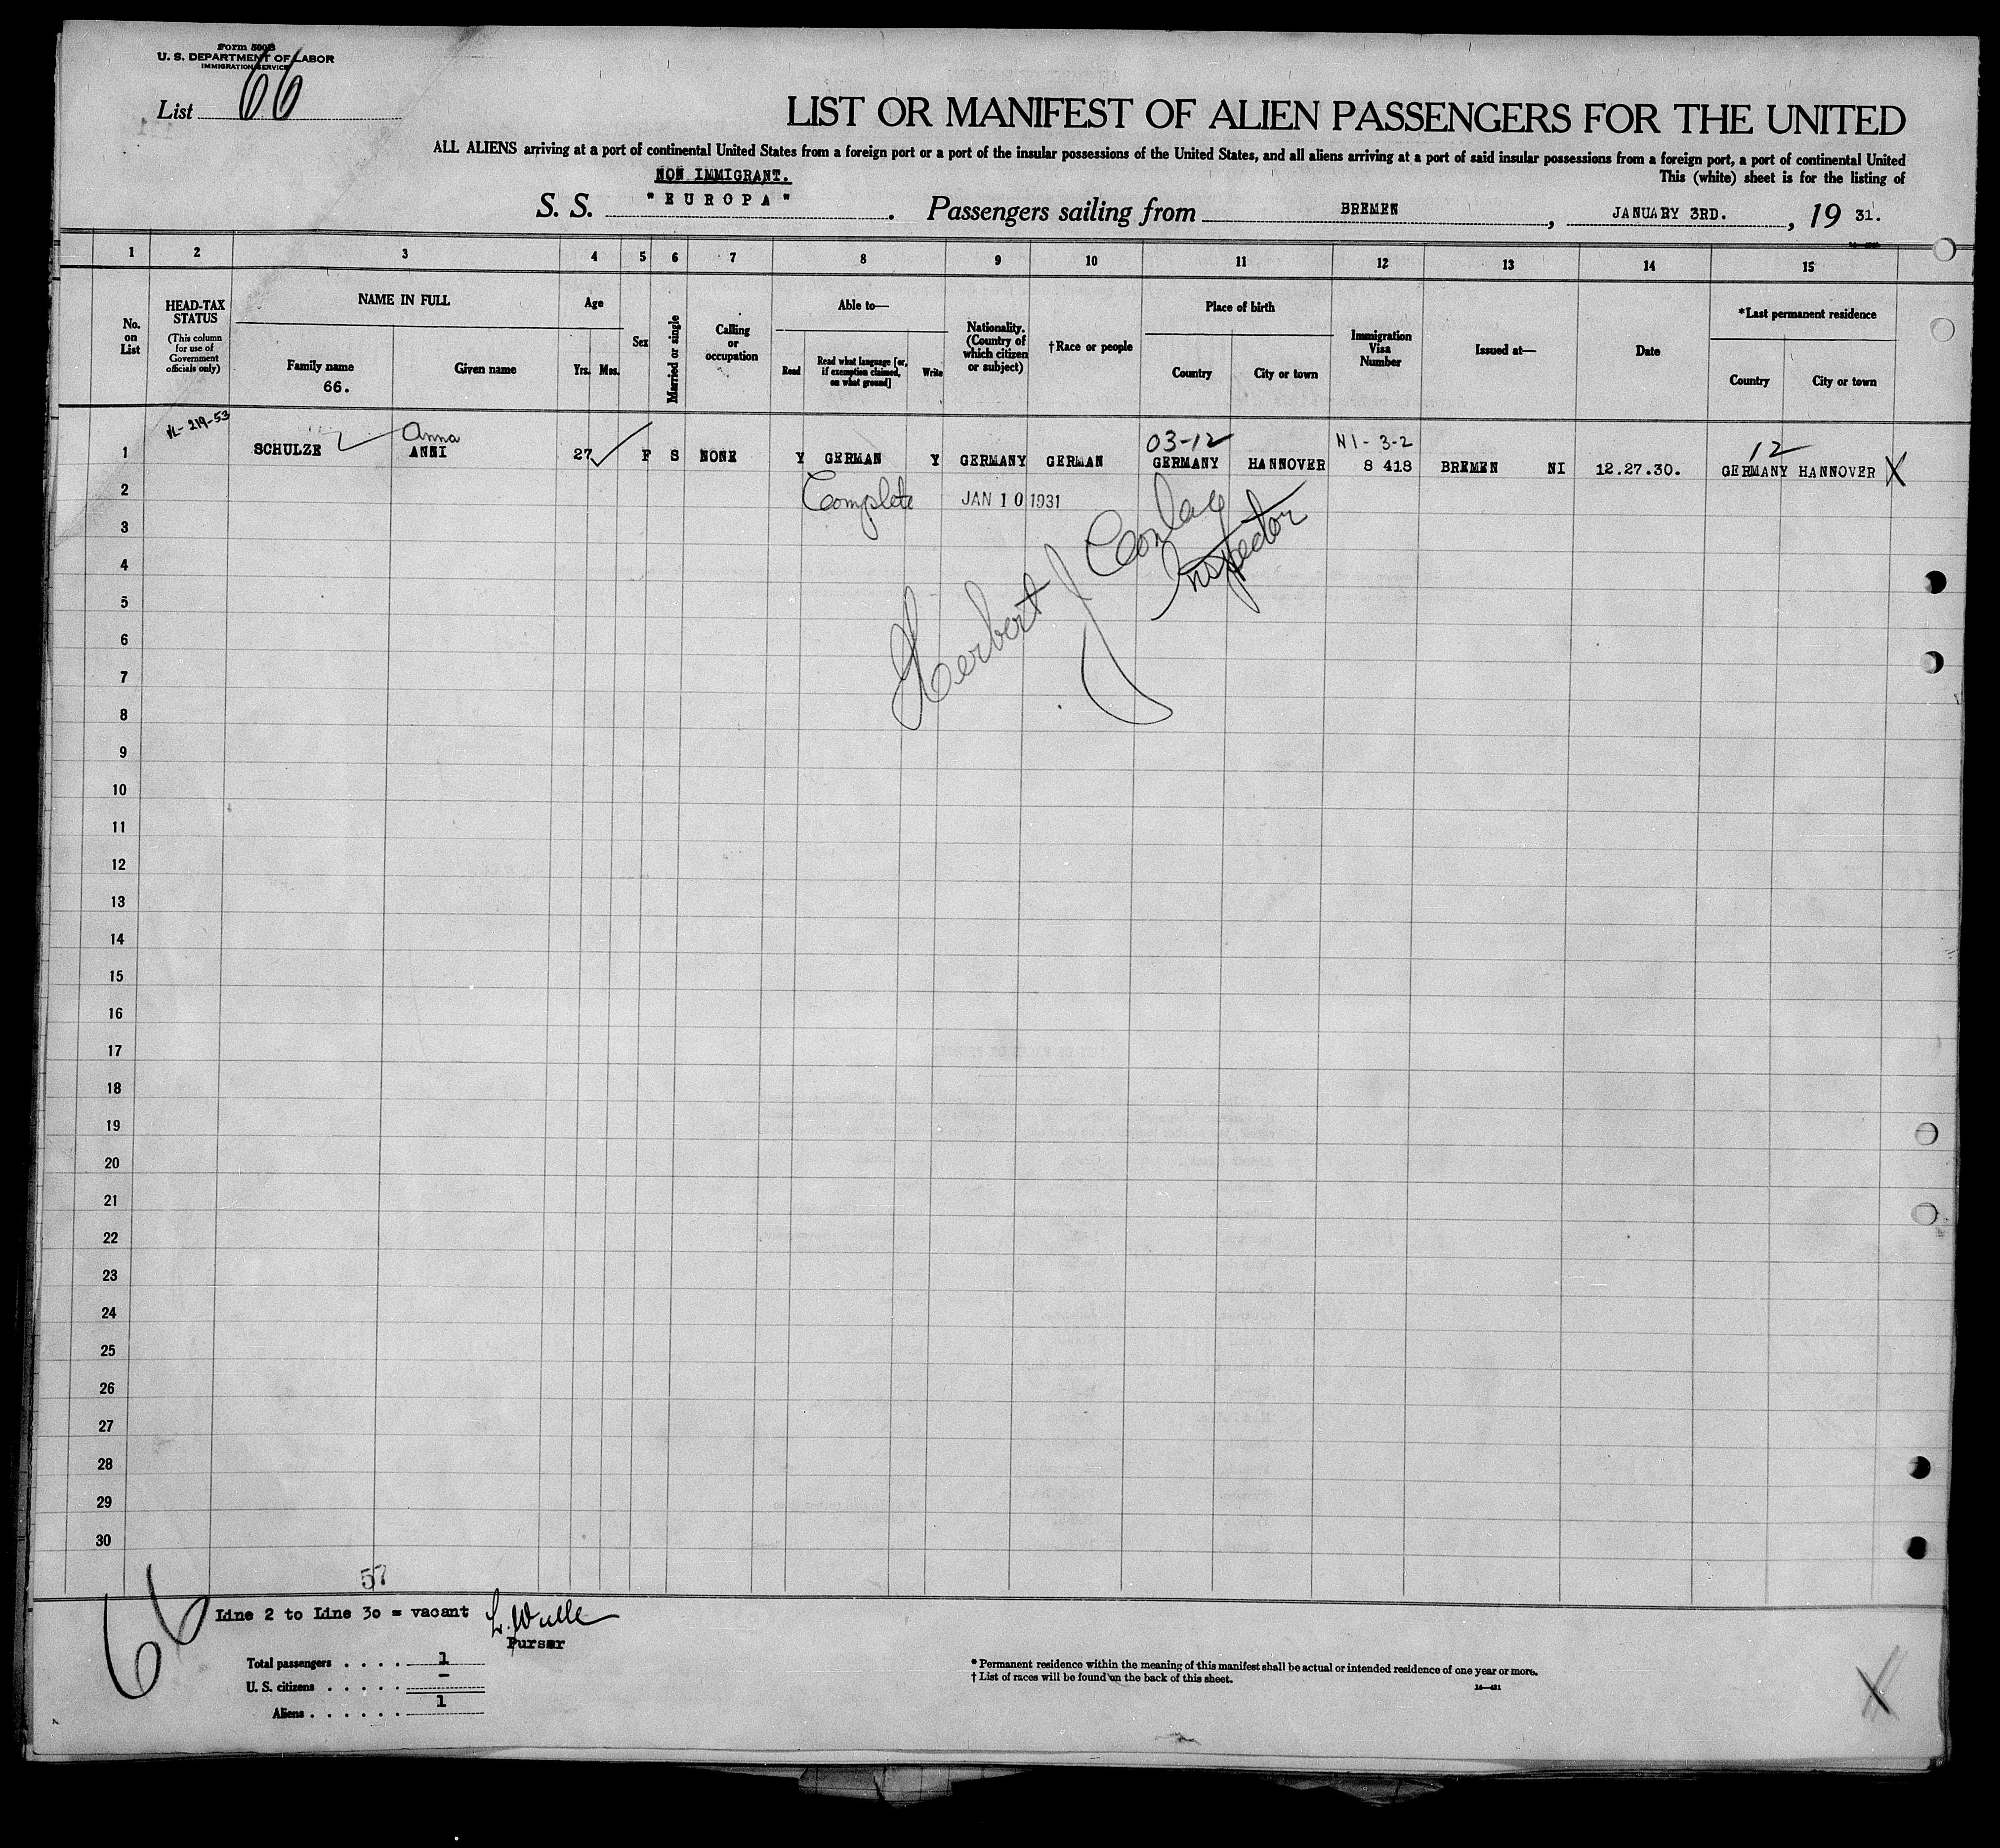 Form 500B
U. S. DEPARTMENT OF LABOR
IMMIGRATION SERVICE
List 66
LIST OR MANIFEST OF ALIEN PASSENGERS FOR THE UNITED
ALL ALIENS arriving at a port of continental United States from a foreign port or a port of the insular possessions of the United States, and all aliens arriving at a port of said insular possessions from a foreign port, a port of continental United
This (white) sheet is for the listing of
NON IMMIGRANT.
S. S. "EUROPA". Passengers sailing from BREMEN, JANUARY 3RD., 19 31.
1 2 3 4 5 6 7 8 9 10 11 12 13 14 15
No. on List
HEAD-TAX STATUS
(This column for use of Government officials only)
NAME IN FULL
Family name
66.
Given name
Age
Yrs. Mos.
Sex
Married or single
Calling or occupation
Able to—
Read
Read what language [or, if exemption claimed, on what ground]
Write
Nationality. (Country of which citizen or subject)
†Race or people
Place of birth
Country
City or town
Immigration Visa Number
Issued at—
Date
*Last permanent residence
Country
City or town
VL-219-53
Anna
03-12
NI-3-2
12
1 SCHULZE ANNI 27 F S NONE Y GERMAN Y GERMANY GERMAN GERMANY HANNOVER 8 418 BREMEN NI 12.27.30. GERMANY HANNOVER X
2 Complete JAN 10 1931
3
4
5
6
7
8
Herbert J Conlay
Inspector
9
10
11
12
13
14
15
16
17
18
19
20
21
22
23
24
25
26
27
28
29
30
57
66
Line 2 to Line 30 = vacant
Purser
Total passengers . . . . 1
U. S. citizens . . . . . –
Aliens . . . . . . 1
* Permanent residence within the meaning of this manifest shall be actual or intended residence of one year or more.
† List of races will be found on the back of this sheet.
X